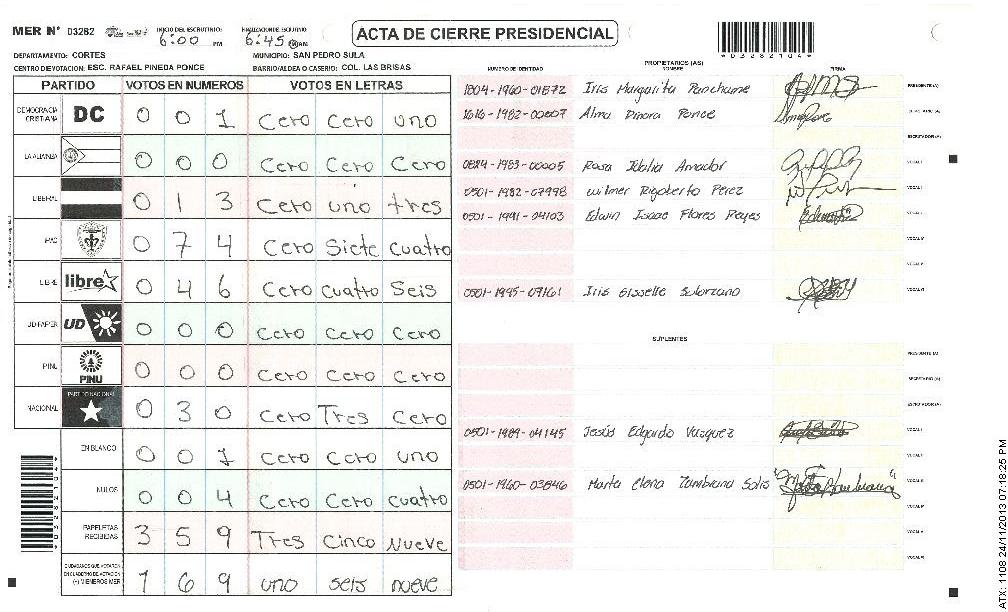 MER N° 03282 INICIO DEL ESCRUTINIO: 6:00 PM FINALIZACION DE ESCRUTINIO 6:45 AM ACTA DE CIERRE PRESIDENCIAL
DEPARTAMENTO: CORTES MUNICIPIO: SAN PEDRO SULA
CENTRO DE VOTACION: ESC. RAFAEL PINEDA PONCE BARRIO/ALDEA O CASERIO: COL. LAS BRISAS
PARTIDO VOTOS EN NUMEROS VOTOS EN LETRAS
DEMOCRACIA CRISTIANA DC 0 0 1 Cero Cero uno
LA ALIANZA 0 0 0 Cero Cero Cero
LIBERAL 0 1 3 Cero uno tres
PAC 0 7 4 Cero Siete Cuatro
LIBRE libre 0 4 6 Cero Cuatro Seis
UD FAPER UD 0 0 0 Cero Cero Cero
PINU PINU 0 0 0 Cero Cero Cero
NACIONAL PARTIDO NACIONAL 0 3 0 Cero Tres Cero
EN BLANCO 0 0 1 Cero Cero uno
NULOS 0 0 4 Cero Cero cuatro
PAPELETAS RECIBIDAS 3 5 9 Tres Cinco Nueve
CIUDADANOS QUE VOTARON EN CUADERNO DE VOTACION (+) MIEMBROS MER 1 6 9 uno seis nueve
NUMERO DE IDENTIDAD PROPIETARIOS (AS) NOMBRE FIRMA
1804-1960-01872 Iris Margarita Panchame PRESIDENTE (A)
1616-1982-00007 Alma Dinora Ponce SECRETARIO (A)
ESCRUTADOR (A)
0824-1983-00005 Rosa Idalia Amador VOCAL I
0501-1982-07998 Wilmer Rigoberto Perez
0501-1991-04103 Edwin Isaac Flores Reyes
0501-1995-07161 Iris Gisselle Solorzano
SUPLENTES
PRESIDENTE (A)
SECRETARIO (A)
ESCRUTADOR (A)
0501-1989-04145 Jesús Edgardo Vasquez VOCAL I
0501-1960-03646 Marta Elena Zambrana Solis
ATX: 1108 24/11/2013 07:18:25 PM